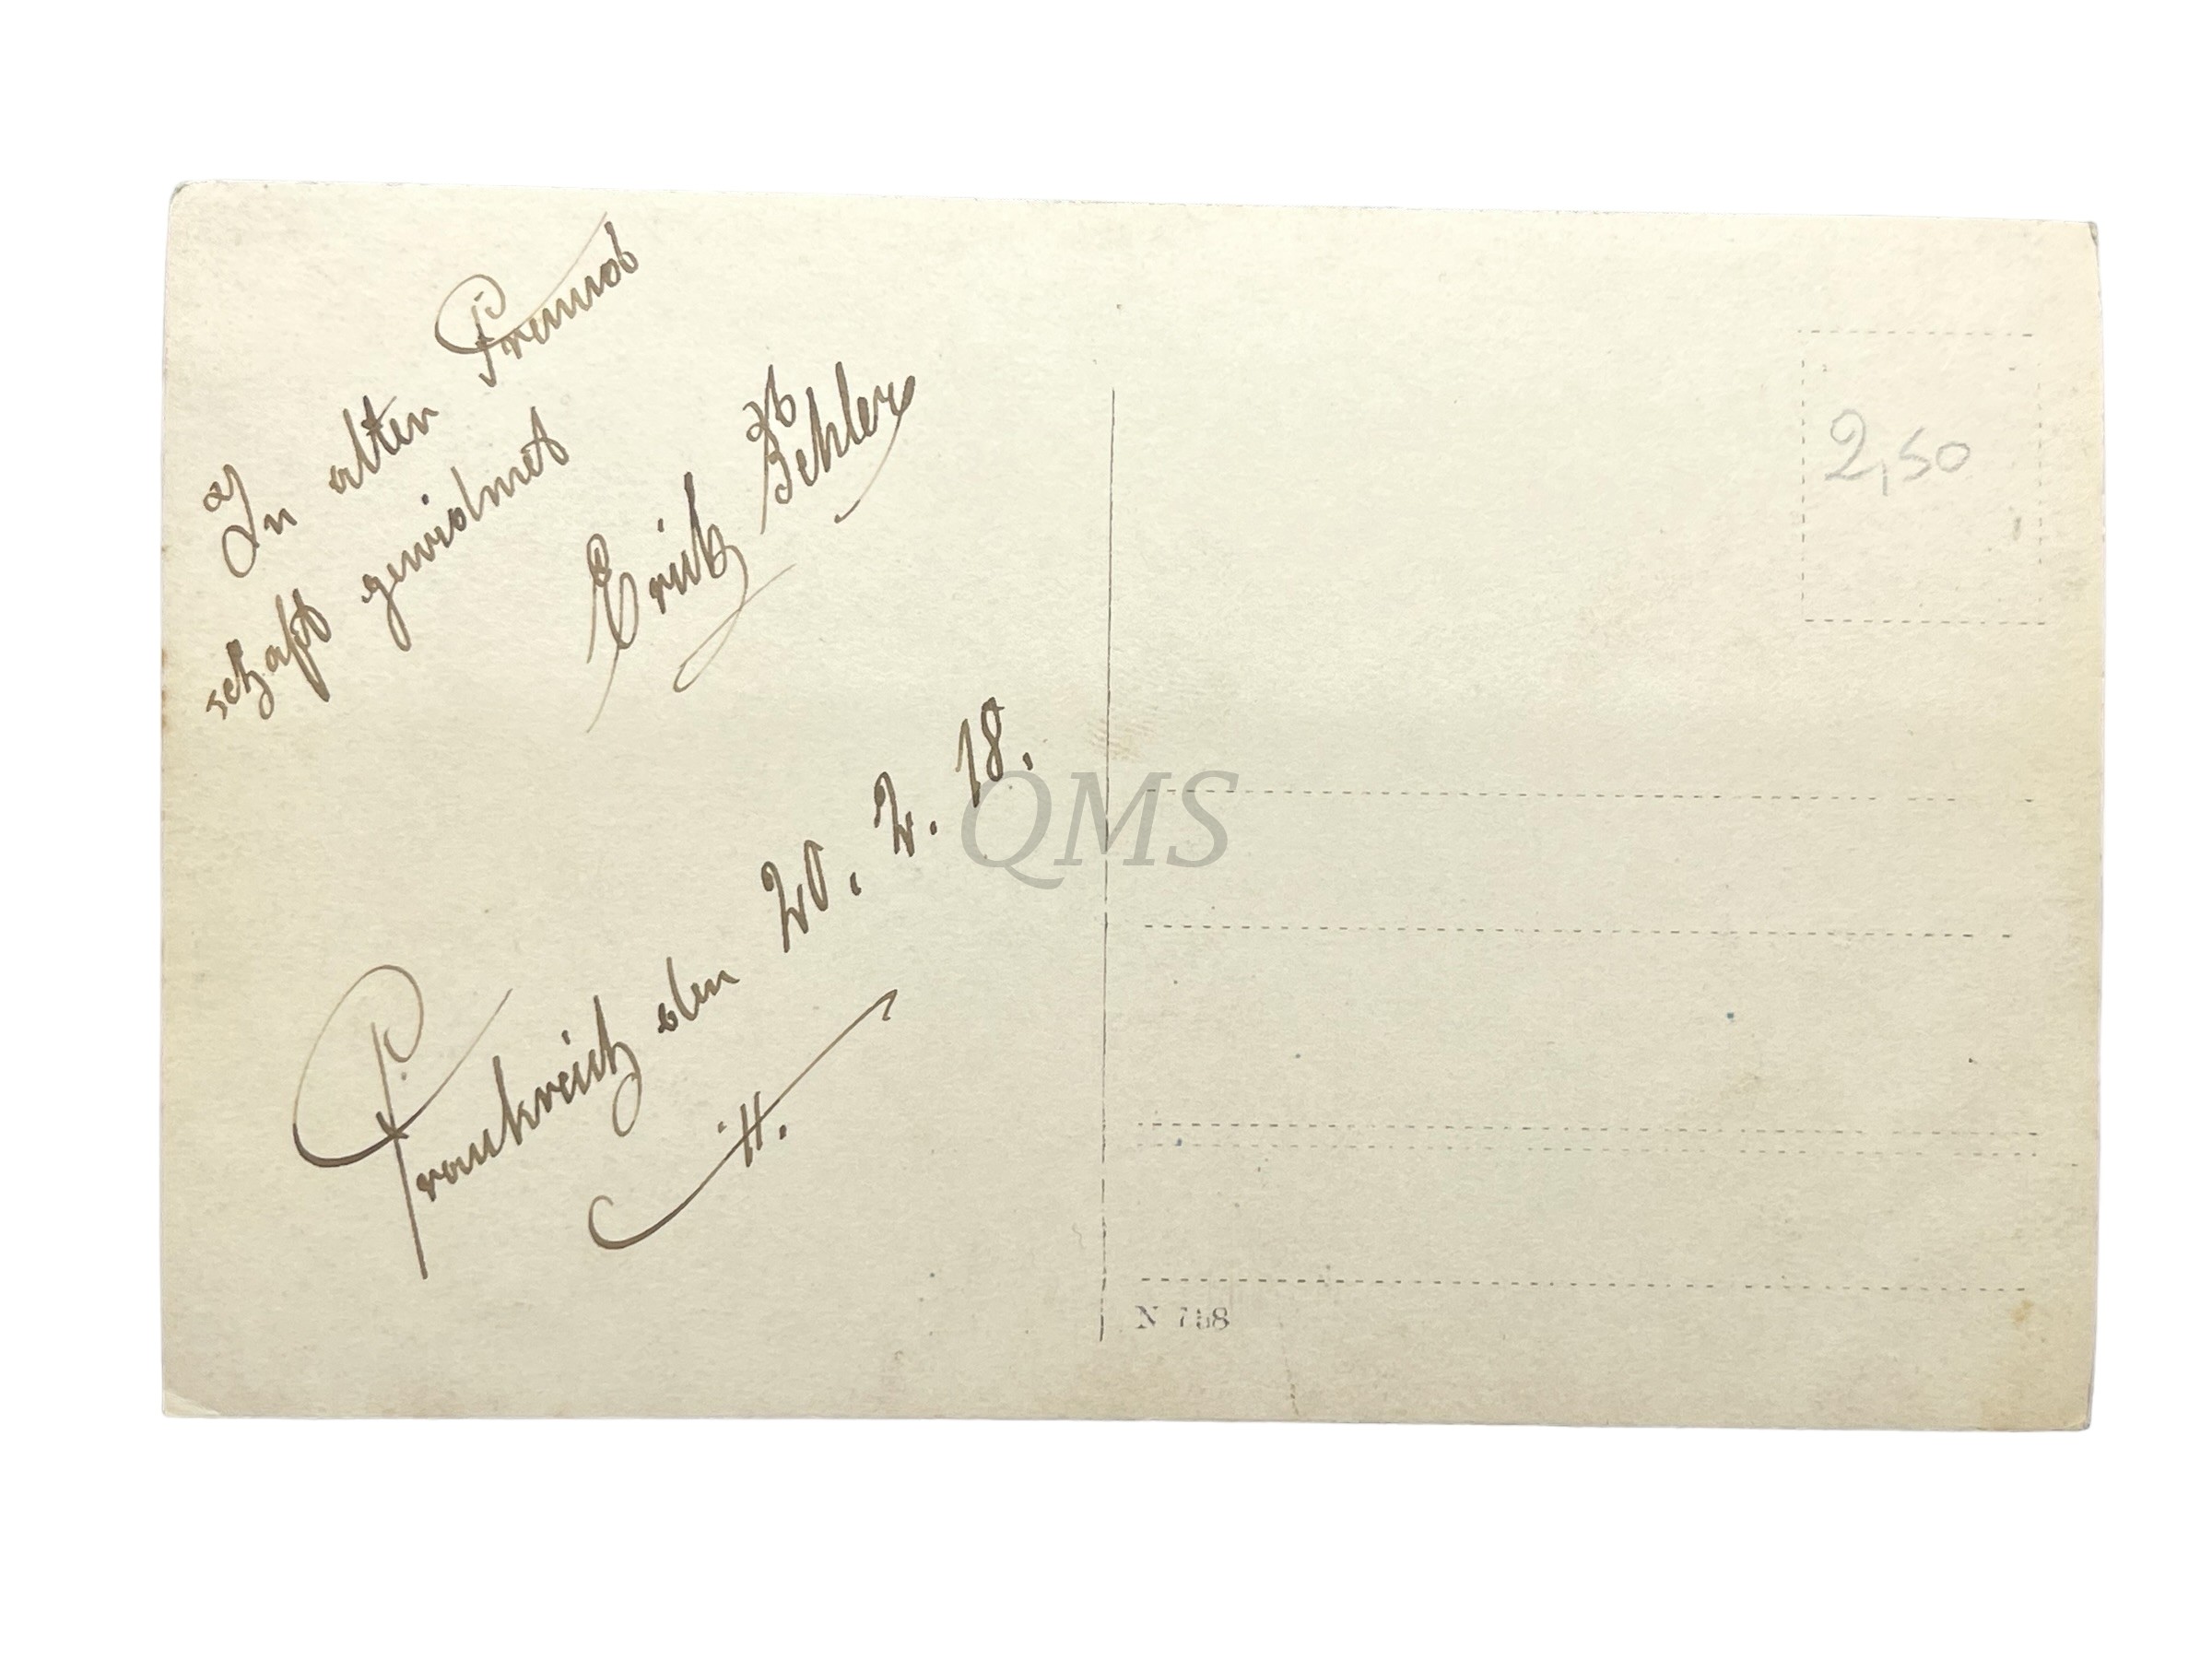 In alten Freund
schaft gewidmet
Erich
Frankreich den 20. 2. 18.
2,50
QMS